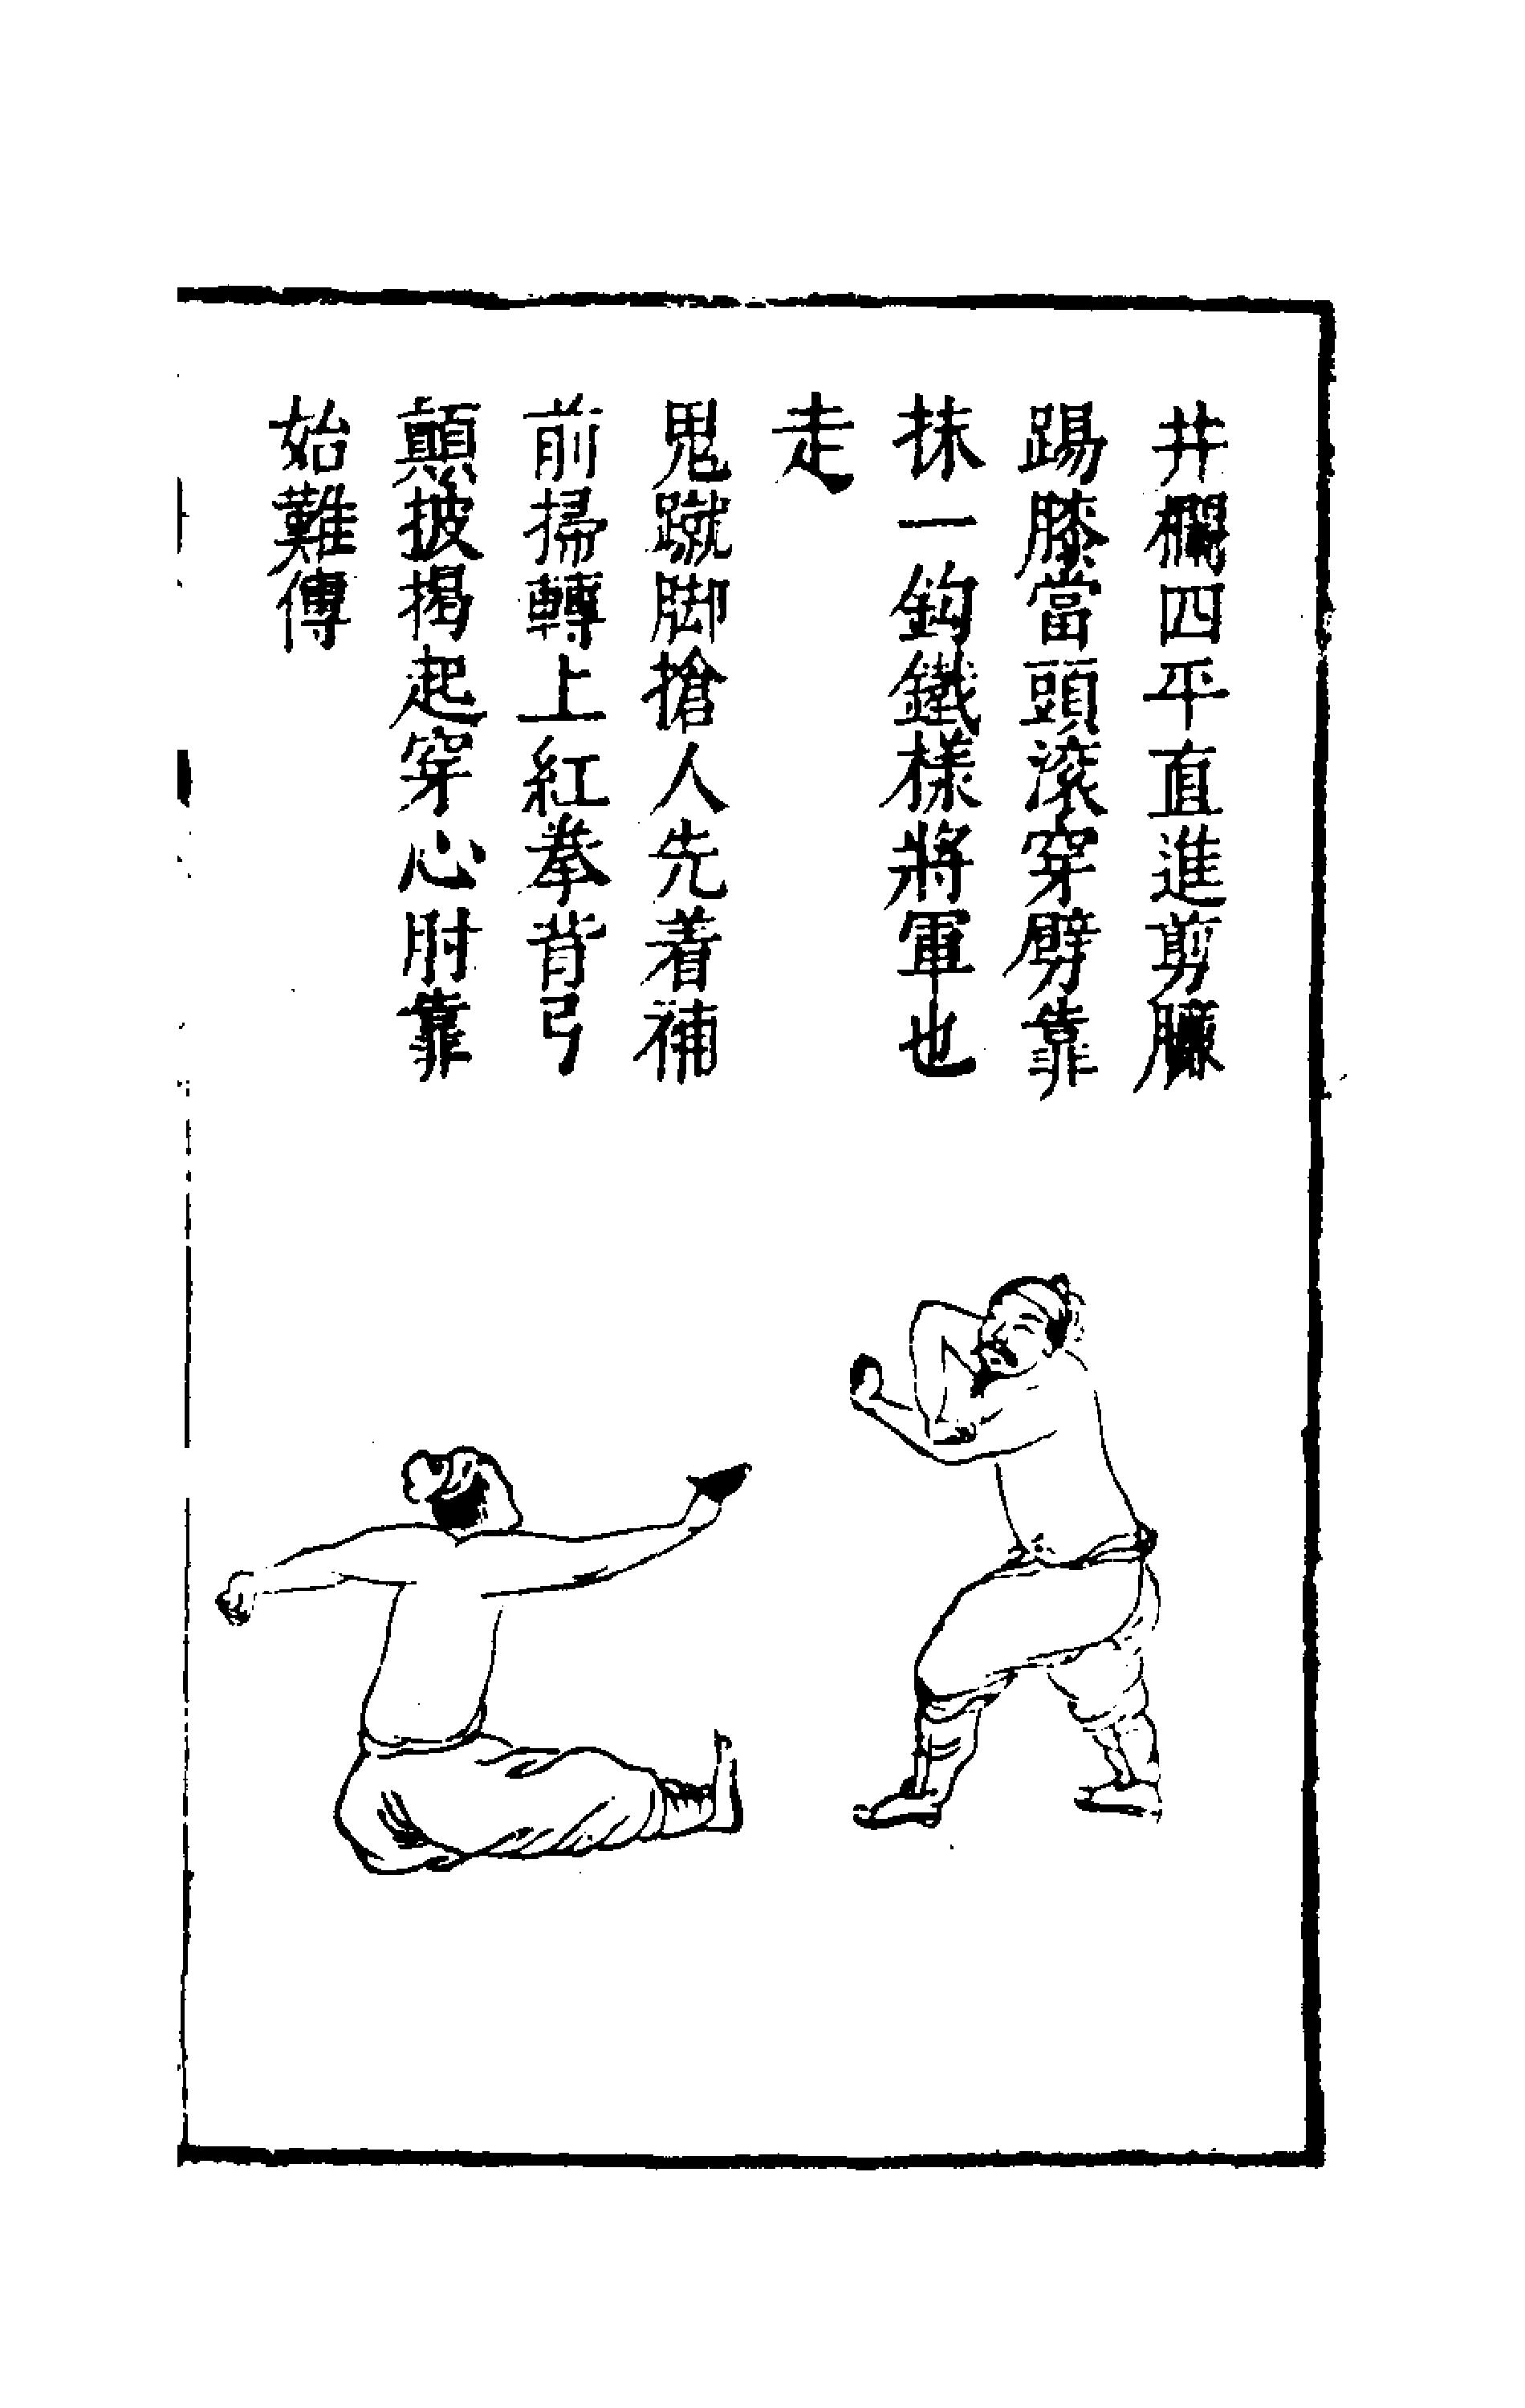 井欄四平直進剪臁
踢膝當頭滚穿劈靠
抹一鈎鐵樣將軍也
走
鬼蹴脚搶人先着補
前掃轉上紅拳背弓
顛披揭起穿心肘靠
始難傳